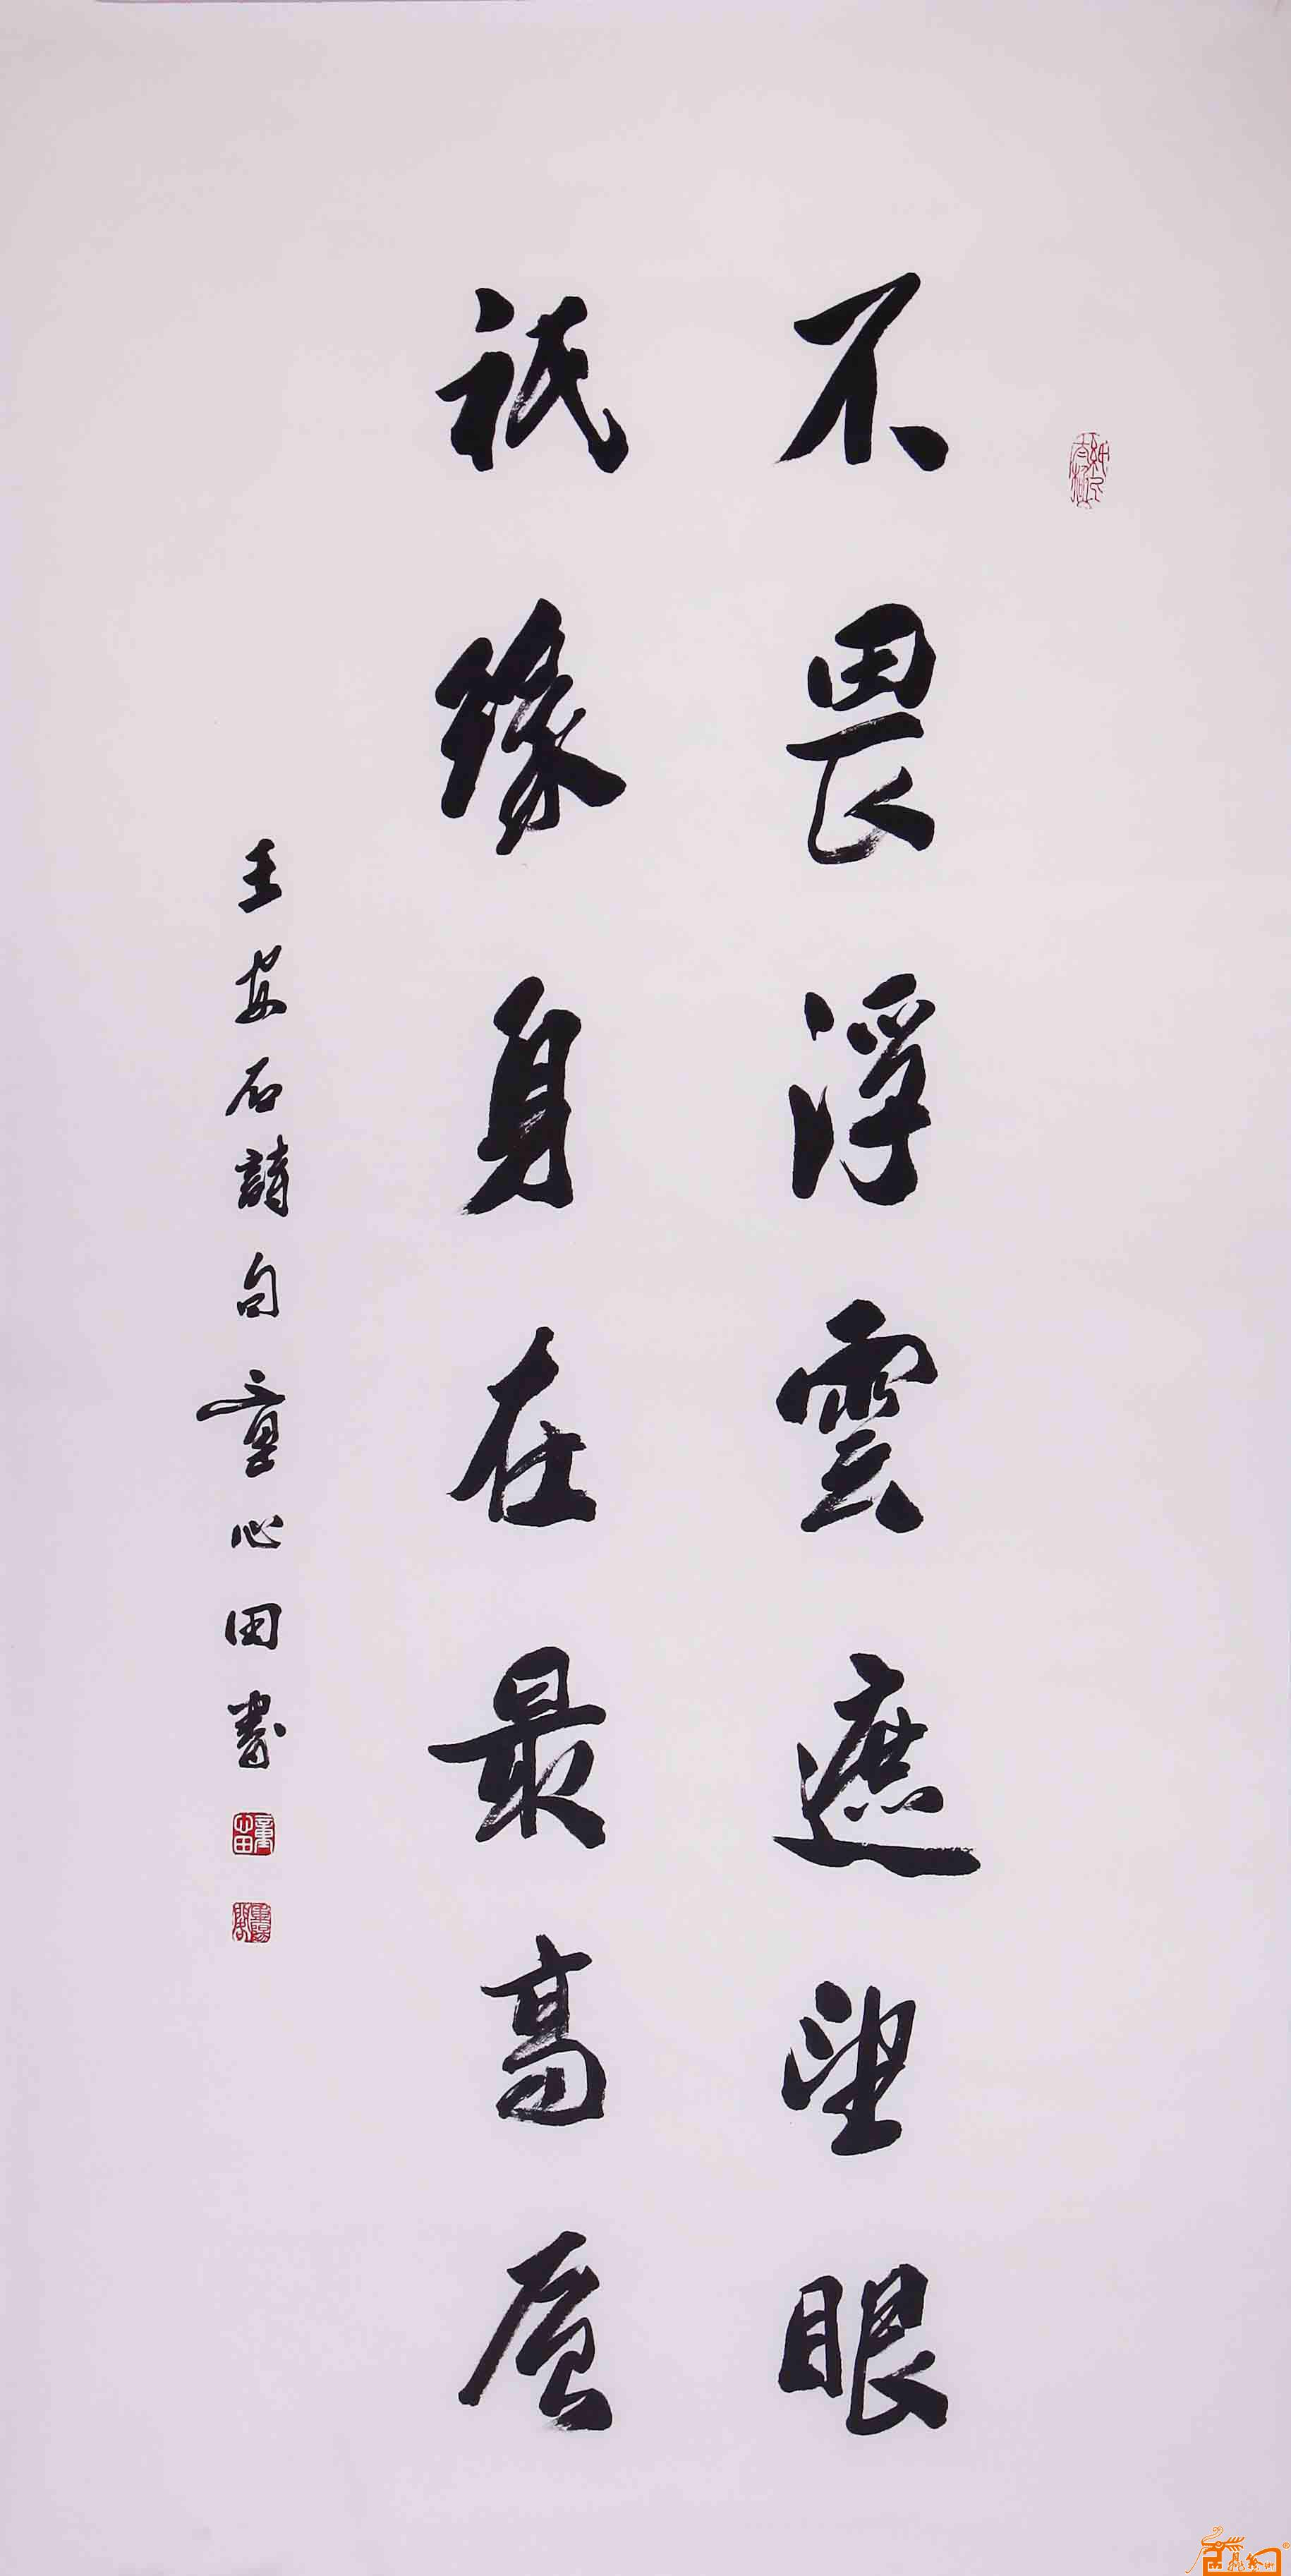 不畏浮雲遮望眼
祇緣身在最高層
王安石詩句 童心田書
童心田